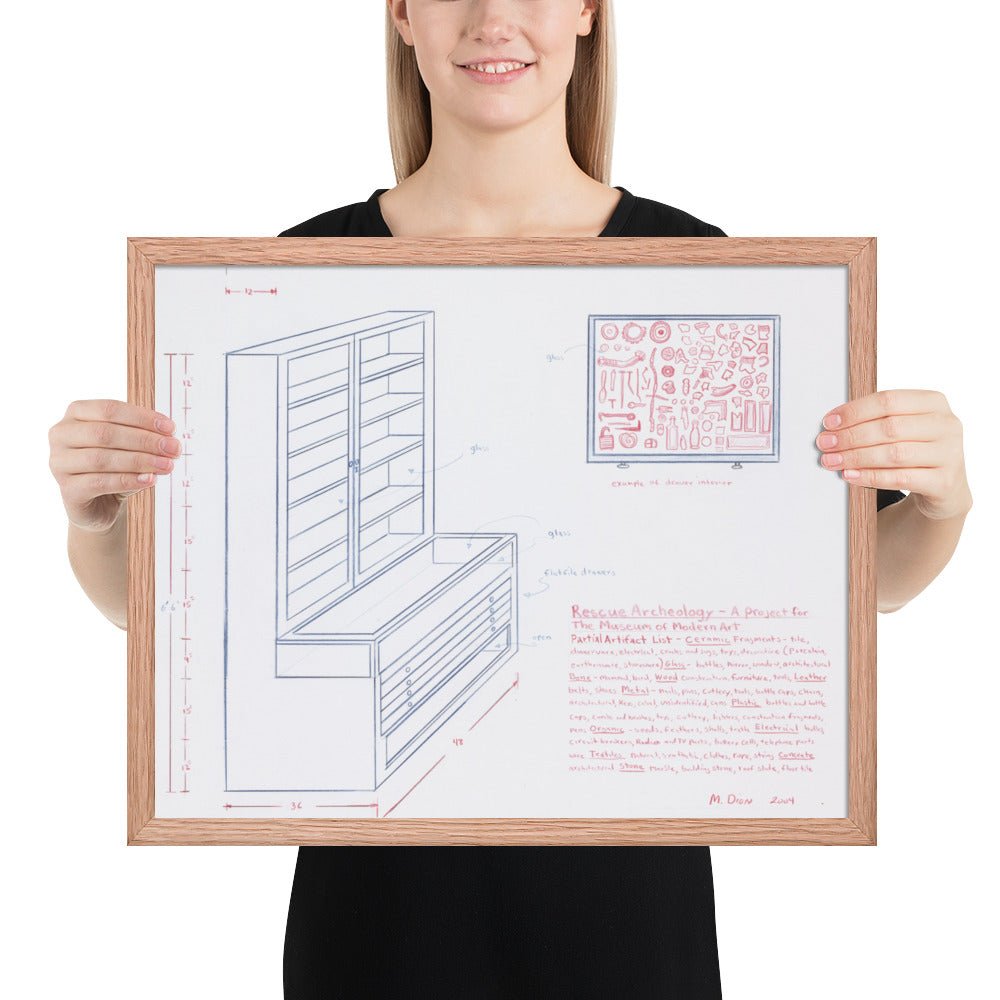 12
12
12
12
15
15
4
15
12
6' 6"
36
48
glass
glass
flatfile drawers
open
glass
example of drawer interior
Rescue Archeology - A Project for
The Museum of Modern Art
Partial Artifact List - Ceramic Fragments - tile,
dinnerware, electrical, crocks and jugs, toys, decorative (Porcelain,
earthenware, stoneware) Glass - bottles, mirror, window, architectural
Bone - mammal, bird, Wood construction, furniture, tools, Leather
belts, shoes Metal - nails, pins, cutlery, tools, bottle caps, chains,
architectural, keys, coins, unidentified, cans Plastic bottles and bottle
caps, combs and brushes, toys, cutlery, lighters, construction fragments,
pens Organic - seeds, feathers, shells, teeth Electrical bulbs,
circuit breakers, Radio and TV parts, battery cells, telephone parts
wire Textiles natural, synthetic, clothes, rope, string Concrete
architectural Stone marble, building stone, roof slate, floor tile
M. Dion 2004